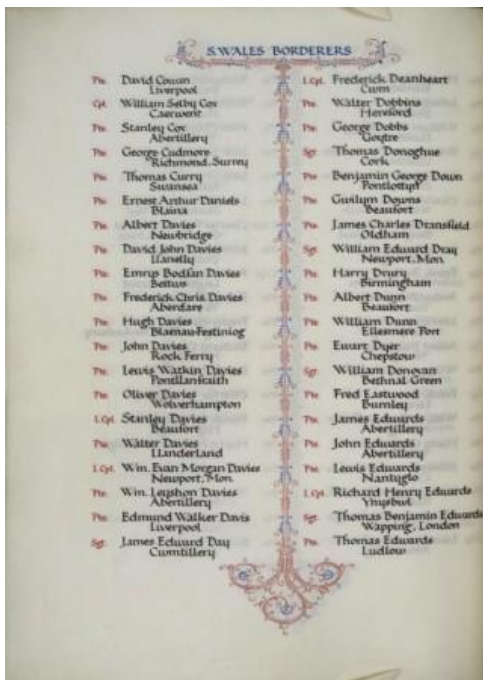 S. WALES BORDERERS
Pte. David Cowan
Liverpool
Cpl. William Selby Cox
Caerwent
Pte. Stanley Cox
Abertillery
Pte. George Cudmore
Richmond, Surrey
Pte. Thomas Curry
Swansea
Pte. Ernest Arthur Daniels
Blaina
Pte. Albert Davies
Newbridge
Pte. David John Davies
Llanelly
Pte. Emrys Bodfan Davies
Bettws
Pte. Frederick Chris. Davies
Aberdare
Pte. Hugh Davies
Blaenau-Festiniog
Pte. John Davies
Rock Ferry
Pte. Lewis Watkin Davies
Pontllanfraith
Pte. Oliver Davies
Wolverhampton
L.Cpl. Stanley Davies
Beaufort
Pte. Walter Davies
Llanderland
L.Cpl. Wm. Evan Morgan Davies
Newport, Mon.
Pte. Wm. Leyshon Davies
Abertillery
Pte. Edmund Walker Davis
Liverpool
Sgt. James Edward Day
Cwmtillery
L.Cpl. Frederick Deanheart
Cwm
Pte. Walter Dobbins
Hereford
Pte. George Dobbs
Goytre
Sgt. Thomas Donoghue
Cork
Pte. Benjamin George Down
Pontlottyn
Pte. Guilym Downs
Beaufort
Pte. James Charles Dransfield
Oldham
Sgt. William Edward Dray
Newport, Mon.
Pte. Harry Drury
Birmingham
Pte. Albert Dunn
Beaufort
Pte. William Dunn
Ellesmere Port
Pte. Ewart Dyer
Chepstow
Sgt. William Donovan
Bethnal Green
Pte. Fred Eastwood
Burnley
Pte. James Edwards
Abertillery
Pte. John Edwards
Abertillery
Pte. Lewis Edwards
Nantyglo
L.Cpl. Richard Henry Edwards
Ynysbwl
Sgt. Thomas Benjamin Edwards
Wapping, London
Pte. Thomas Edwards
Ludlow